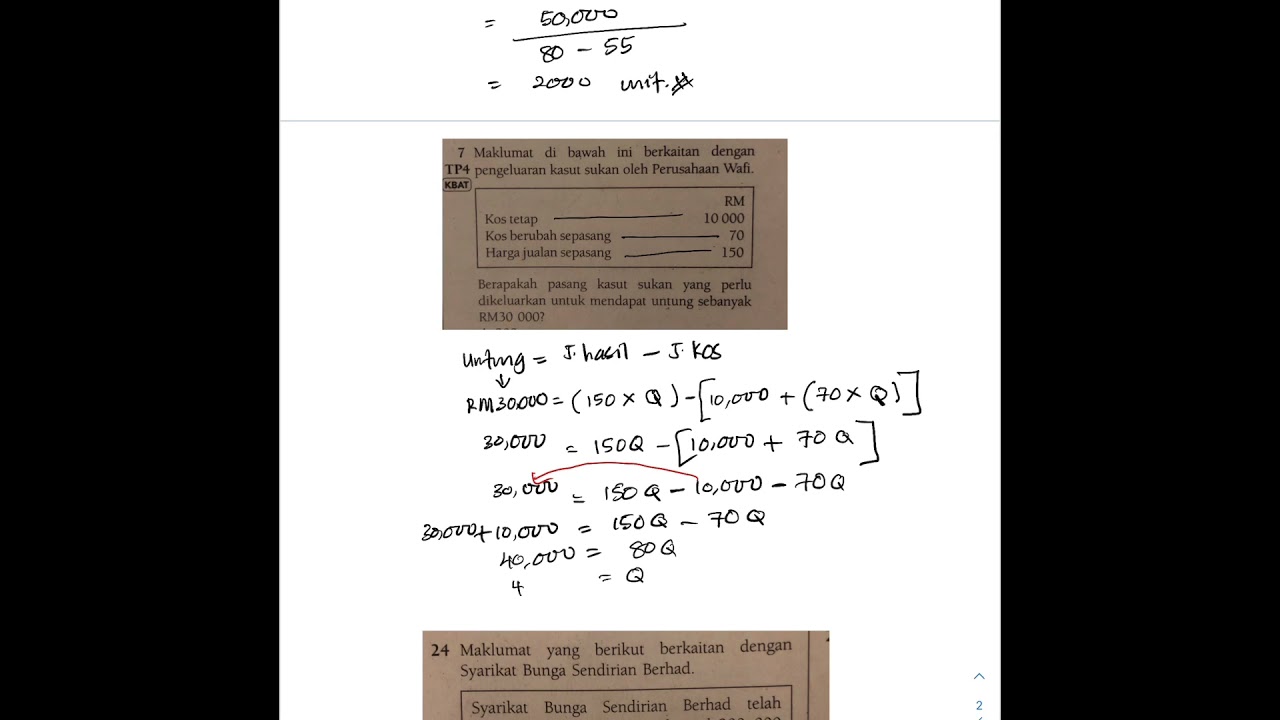 = 50,000
80 - 55
= 2000 unit.
7 Maklumat di bawah ini berkaitan dengan
TP4 pengeluaran kasut sukan oleh Perusahaan Wafi.
KBAT
RM
Kos tetap 10 000
Kos berubah sepasang 70
Harga jualan sepasang 150
Berapakah pasang kasut sukan yang perlu
dikeluarkan untuk mendapat untung sebanyak
RM30 000?
Untung = J.hasil - J.Kos
RM30,000 = (150 x Q) - [10,000 + (70 x Q)]
30,000 = 150Q - [10,000 + 70Q]
30,000 = 150Q - 10,000 - 70Q
30,000 + 10,000 = 150Q - 70Q
40,000 = 80Q
4 = Q
24 Maklumat yang berikut berkaitan dengan
Syarikat Bunga Sendirian Berhad.
Syarikat Bunga Sendirian Berhad telah
2